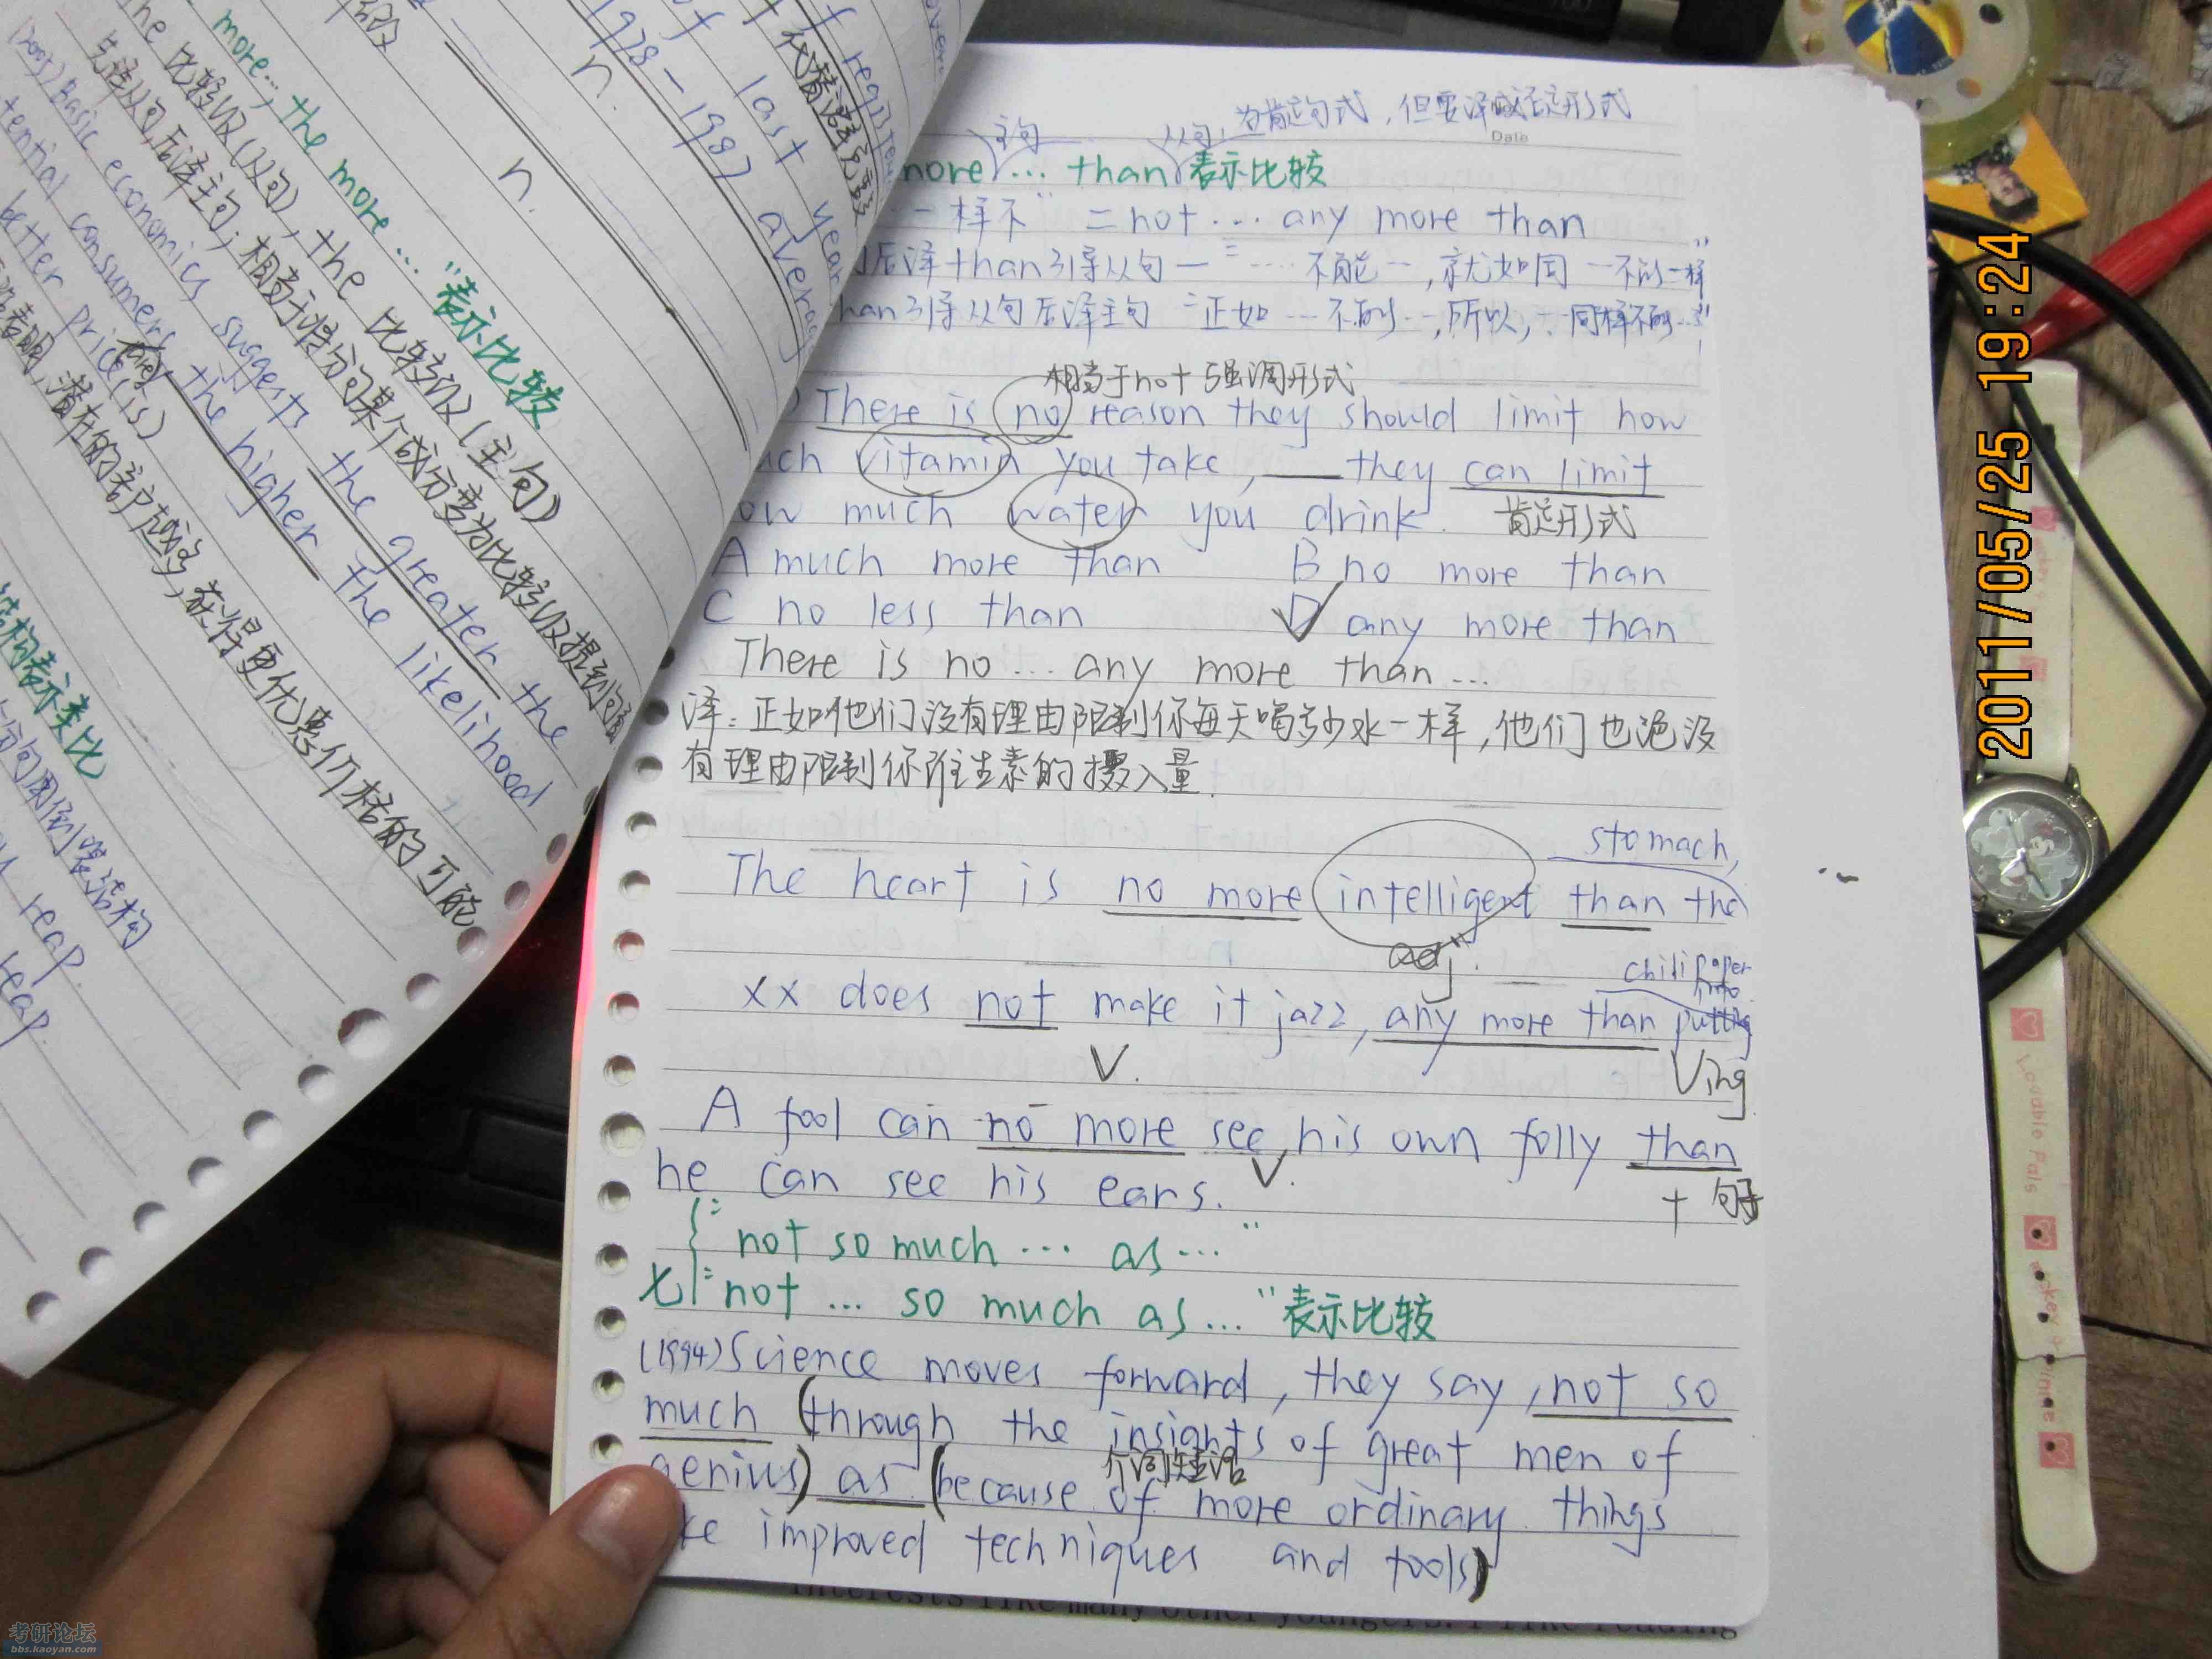 more..., the more... "表示比较
the 比较级(从句), the 比较级(主句)
先译从句,后译主句;相当于将分句某个成分变为比较级提到句首
(2005) Basic economics suggests the greater the
tential consumers, the higher the likelihood
better price(is)
潜在的客户越多,获得更优惠价格的可能
结构表示类比
reap.
reap.
n.
n.
1978-1987 average
of last year
代替
主句
从句:为肯定句式,但要译成否定形式
Date
more ... than 表示比较
一样不" = not ... any more than
后译than引导从句 — "...不能…,就如同…不能一样"
than引导从句后译主句 "正如…不能…,所以,…同样不能…"
相当于not 强调形式
There is no reason they should limit how
uch vitamin you take, ___ they can limit
ow much water you drink. 肯定形式
A much more than B no more than
C no less than D any more than
There is no ... any more than ...
译:正如他们没有理由限制你每天喝多少水一样,他们也没
有理由限制你维生素的摄入量.
stomach,
The heart is no more intelligent than the
adj.
chili paper
into
xx does not make it jazz, any more than putting
V. Ving
A fool can no more see his own folly than
he can see his ears. V. + 句子
"not so much ... as ..."
"not ... so much as ..." 表示比较
(1994) Science moves forward, they say, not so
much (through the insights of great men of
介词短语
genius) as (because of more ordinary things
ke improved techniques and tools)
2011/05/25 19:24
Lovable Pals
考研论坛
bbs.kaoyan.com